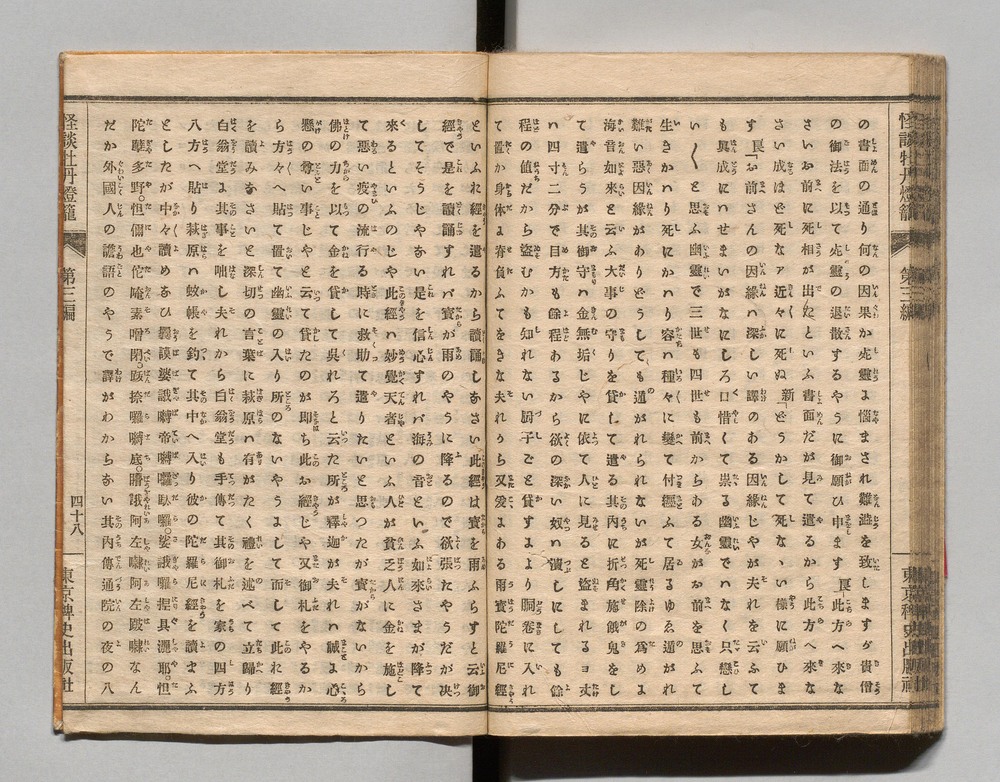 怪談牡丹燈籠
第三編
東京稗史出版社
の書面の通り何の因果か死靈よ惱まされ難澁を致しますグ貴僧
の御法を以て死靈の退散するやうに御願ひ申ます 良「此方へ來な
さいお前に死相が出たといふ書面だが見て遣るから此方へ來な
さい成ほど死なァ近々に死ぬ 新「どうかして死なゝい樣に願ひま
す 良「お前さんの因緣ハ深しい譯のある因緣じやが夫れを云ふて
も眞成にハせまいが何しろ口惜くて祟る幽靈でハなく只戀し
い〳〵と思ふ幽靈で三世も四世も前からある女がお前を思ふて
生きかハり死にかハり容ハ種々に變て付纒ふて居るゆゑ遁がれ
難い惡因緣がありどうしても遁がれられないが死靈除の爲めよ
海音如來と云ふ大事の守りを貸して遣る其内に折角施餓鬼をし
て遣らうが其御守ハ金無垢じやに依て人に見ると盜まれるヨ丈
ハ四寸二分で目方も餘程あるから欲の深い奴ハ潰しにしても餘
程の値だから盜むかも知れない厨子ごと貸すより胴卷に入れ
て置か身体よ脊負ふてをきなそれから又愛よある雨寳陀羅尼經
といふれ經を遣るから讀誦しなさい此經は寳を雨ふらすと云御
經で是を讀誦すれバ寳が雨のやうに降るので欲張たやうだが决
してそうじやない是を信心すれバ海の音といふ如來さまが降て
來るといふのじや此經ハ妙覺天者といふ人が貧乏人に金を施し
て惡い疫の流行る時に救助て遣りたいと思つたが寳がないから
佛の力を以て金を貸して呉れろと云た所が釋迦が夫れハ誠よ心
懸の尊い事じやと云て貸たのが即ち此お經じや又御札をやるか
ら方々へ貼て置て幽靈の入り所のないやうよして而して此れ經
を讀みなさいと深切の言葉に萩原ハ有がたく禮を述べて立歸り
白翁堂よ其事を咄し夫れから白翁堂も手傳て其御札を家の四方
八方へ貼り萩原ハ蚊帳を釣て其中へ入り彼の陀羅尼經を讀まふ
としたが中々讀めない曩謨婆誐嚩帝嚩囉駄囉。娑誐囉捏具灑耶。怛
陀孽多野。怛儞也佗唵素嚕閉跋捺囉嚩底。瞢誐阿左嚇阿左跛嚇なん
だか外國人の譫語のやうで譯がわからない其内傳通院の夜の八
怪談牡丹燈籠
第三編
四十八
東京稗史出版社